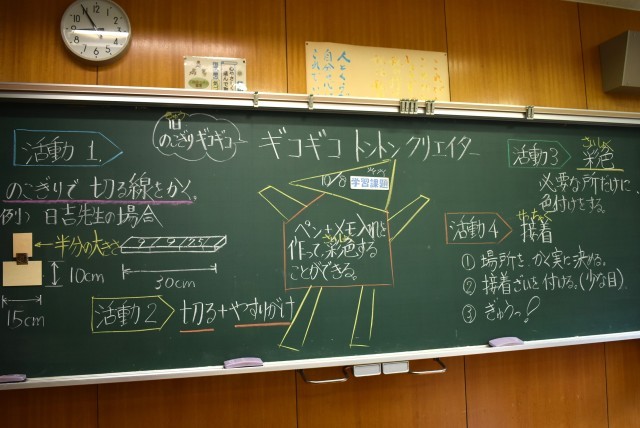 活動1.
のこぎりで 切る線をかく。
例) 日吉先生の場合
半分の大きさ
10cm
15cm
30cm
活動2
切る+やすりがけ
のこぎりギコギコ
ギコギコ トントン クリエイター
10/8
学習課題
ペン+メモ入れを
作って、彩色する
ことができる。
活動3
さいしょく
彩色
必要な所だけに
色付けをする。
活動4
せっちゃく
接着
① 場所を、かく実に決める。
② 接着ざいを付ける。(少な目)
③ ぎゅうっ!